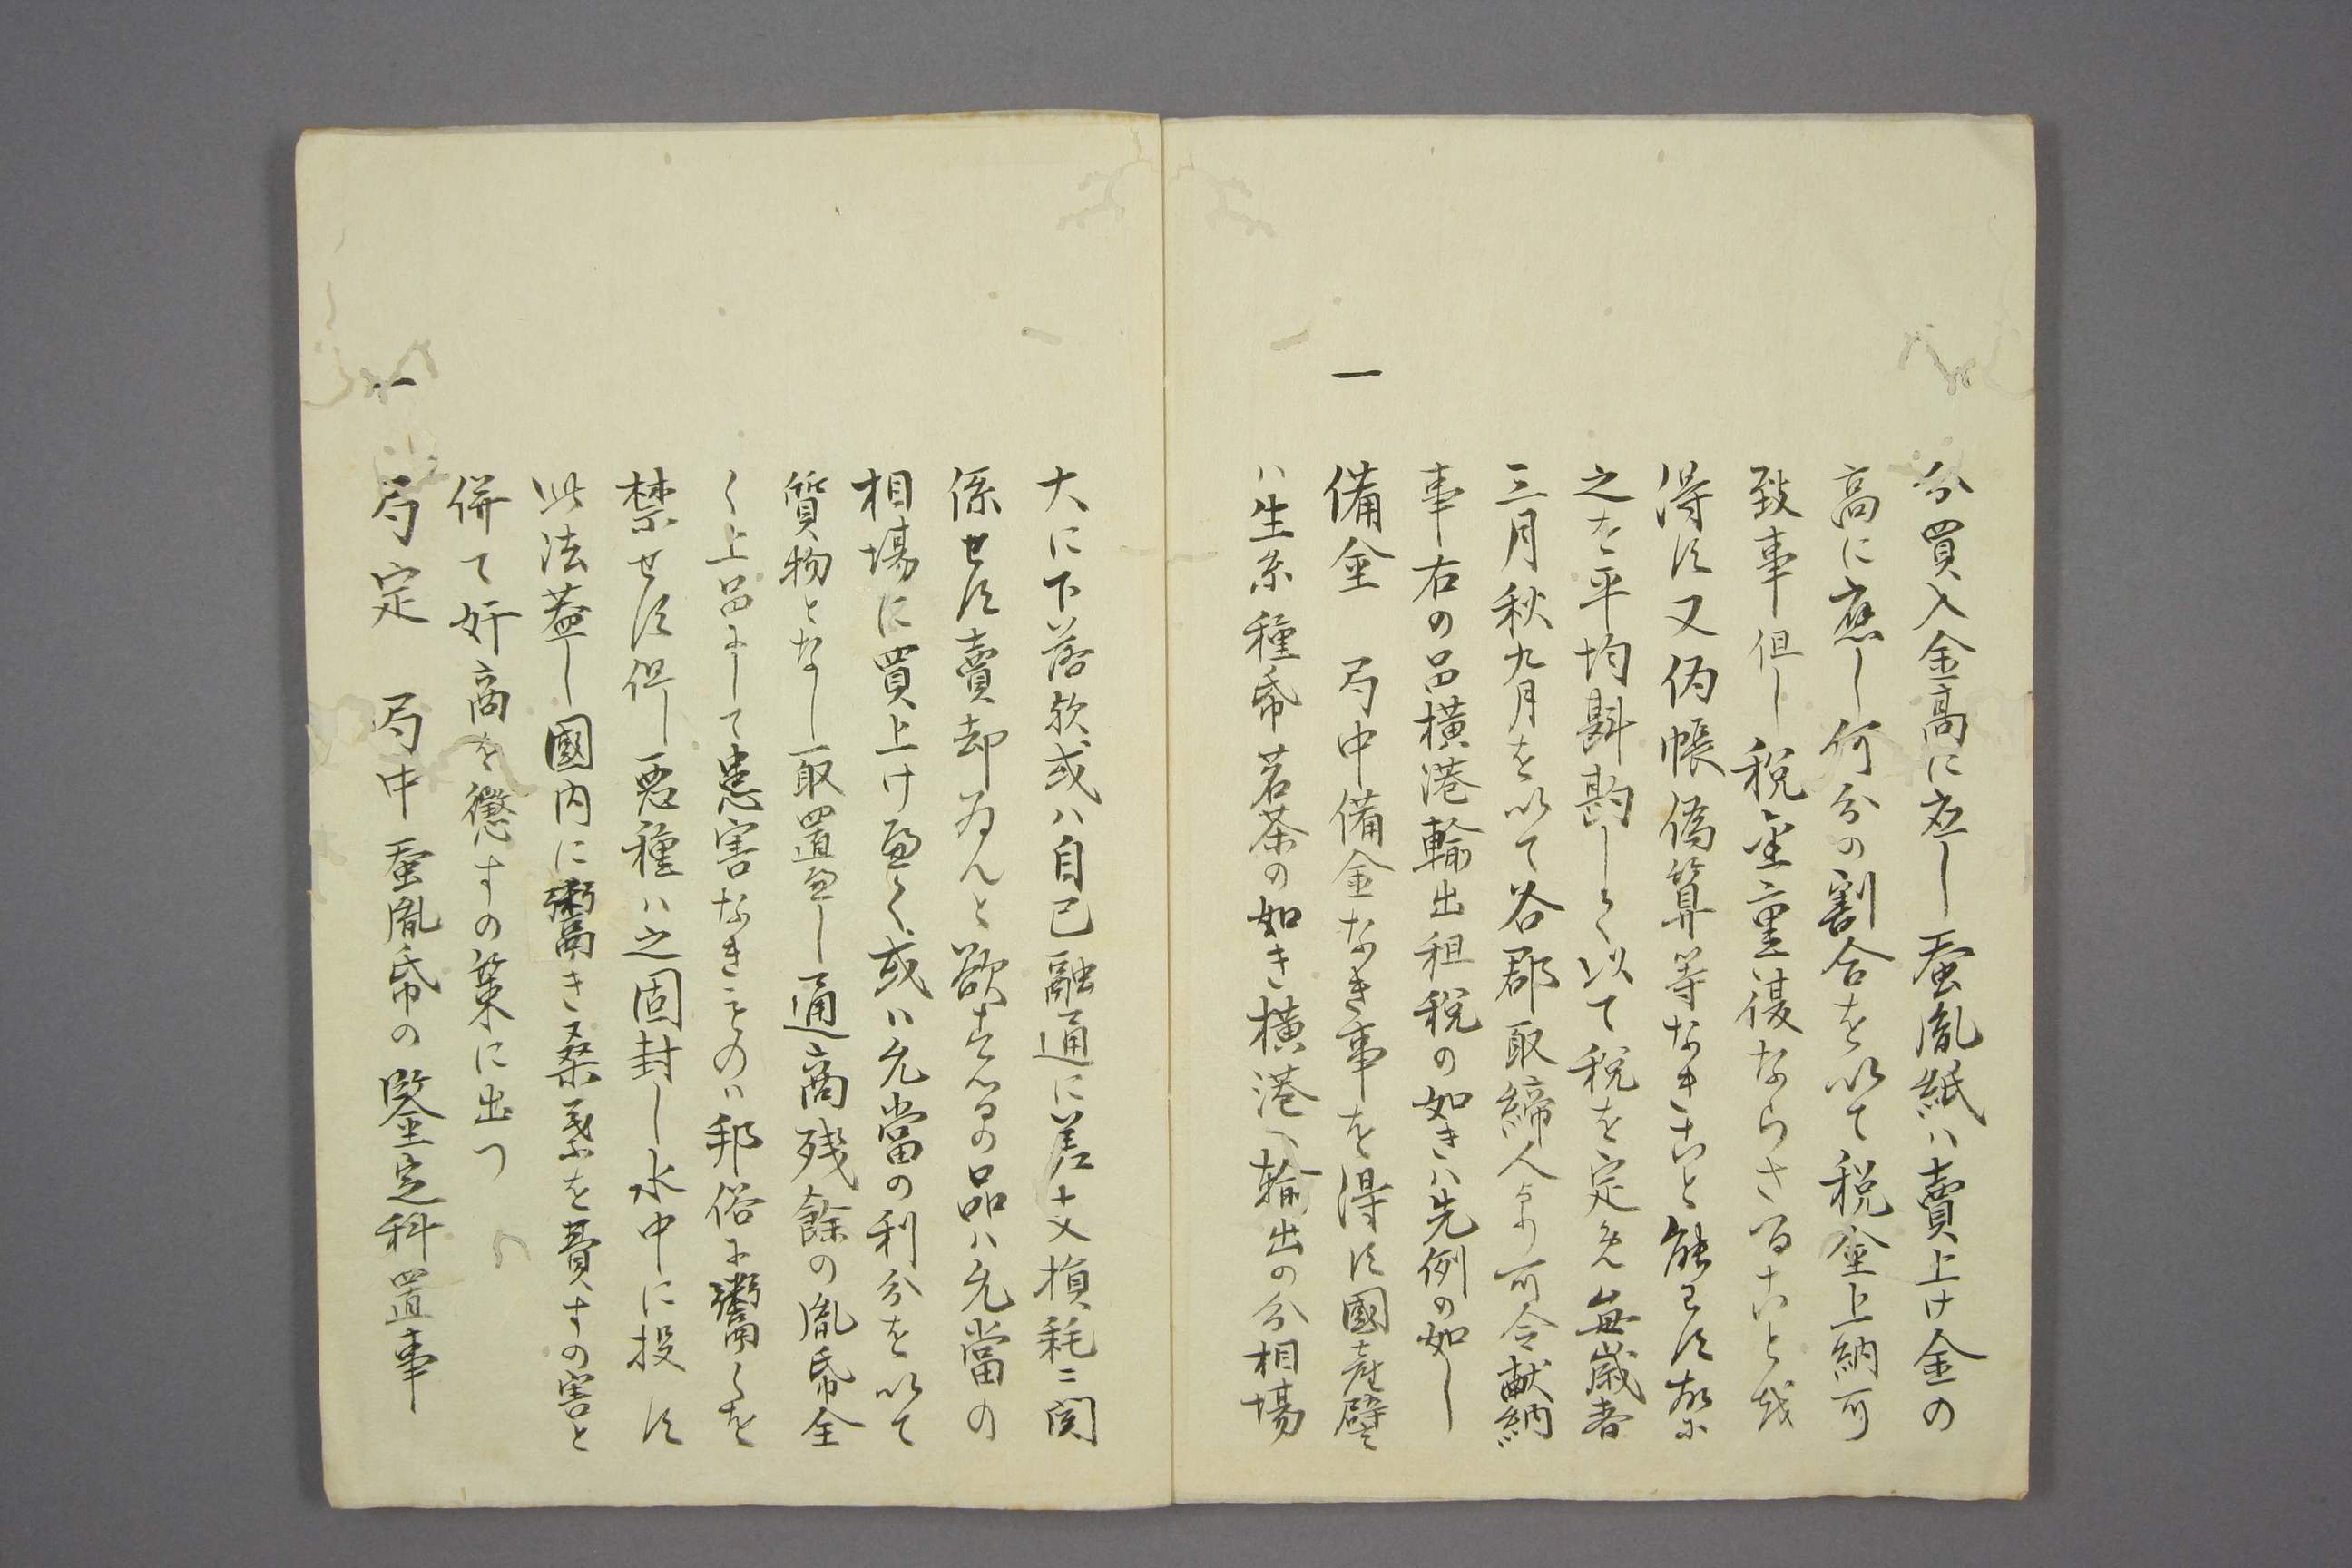 分買入金高に応し蚕胤紙ハ賣上け金の
高に應し何分の割合を以て税金上納可
致事但し税金重複ならさること
得す又偽帳偽算等なきこと能ハす故に
之を平均斟酌して以て税を定め毎歳春
三月秋九月を以て各郡取締人より可令献納
事右の品横港輸出租税の如きハ先例の如し
一 備金 局中備金なき事を得す國産譬
ハ生糸種帋茗茶の如き横港へ輸出の分相場
大に下落欤或ハ自己融通に差支損耗ニ関
係せす賣却みんと欲するの品ハ允當の
相場に買上け置く或ハ允當の利分を以て
質物となし取置くへし通商残餘の胤帋全
く上品にして患害なきものハ邦俗に鬻くを
禁せす但し悪種ハ之固封し水中に投す
此法蓋し國内に鬻き桑葉を費すの害と
併て奸商を懲すの策に出つ
一 局定 局中蚕胤帋の鑒定科置事